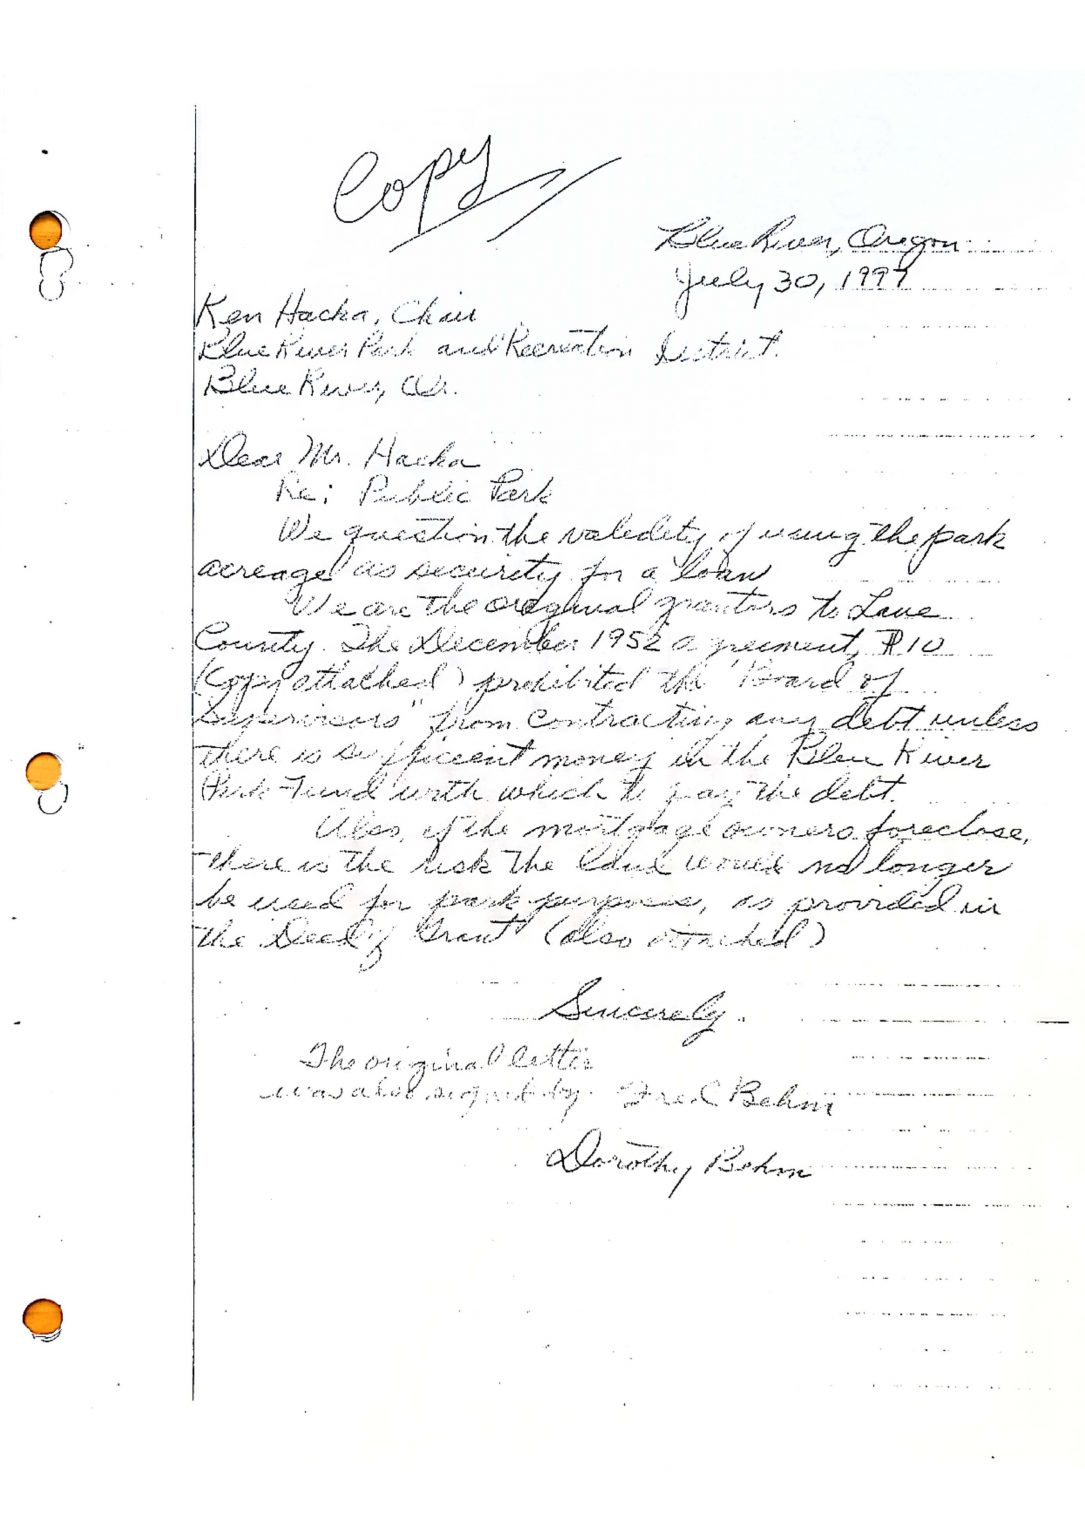 Copy
Blue River, Oregon
July 30, 1997
Ken Hacka, Chair
Blue River Park and Recreation District.
Blue River, Or.
Dear Mr. Hacka
Re: Public Park
We question the validity of using the park
acreage as security for a loan
We are the original grantors to Lane
County. The December 1952 agreement, #10
(Copy attached) prohibited the "Board of
Supervisors" from contracting any debt unless
there is sufficient money in the Blue River
Park Fund with which to pay the debt.
Also, if the mortgage owners foreclose,
there is the risk the land would no longer
be used for park purposes, as provided in
the Deed of Grant (also attached)
Sincerely,
The original letter
was also signed by: Fred Behm
Dorothy Behm